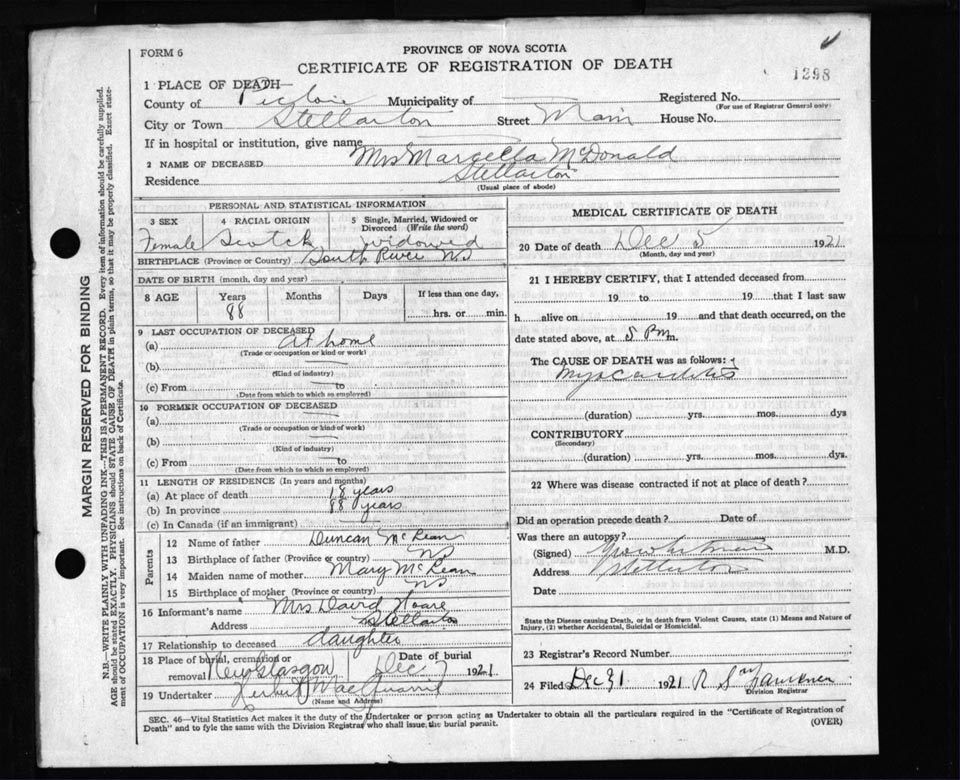 FORM 6
PROVINCE OF NOVA SCOTIA
CERTIFICATE OF REGISTRATION OF DEATH
1298
1 PLACE OF DEATH—
County of Pictou Municipality of Registered No.
(For use of Registrar General only)
City or Town Stellarton Street Main House No.
If in hospital or institution, give name
2 NAME OF DECEASED Mrs Marcella McDonald
Residence Stellarton
(Usual place of abode)
PERSONAL AND STATISTICAL INFORMATION
3 SEX 4 RACIAL ORIGIN 5 Single, Married, Widowed or Divorced (Write the word)
Female Scotch widowed
BIRTHPLACE (Province or Country) South River NS
DATE OF BIRTH (month, day and year)
8 AGE Years Months Days If less than one day,
88 hrs. or min.
9 LAST OCCUPATION OF DECEASED
(a) At home
(Trade or occupation or kind or work)
(b)
(Kind of industry)
(c) From to
(Date from which to which so employed)
10 FORMER OCCUPATION OF DECEASED
(a)
(Trade or occupation or kind of work)
(b)
(Kind of industry)
(c) From to
(Date from which to which so employed)
11 LENGTH OF RESIDENCE (In years and months)
(a) At place of death 18 years
(b) In province 88 years
(c) In Canada (if an immigrant)
Parents
12 Name of father Duncan McLean
13 Birthplace of father (Province or country) NS
14 Maiden name of mother Mary McLean
15 Birthplace of mother (Province or country) NS
16 Informant's name Mrs David Hoare
Address Stellarton
17 Relationship to deceased daughter
18 Place of burial, cremation or removal New Glasgow Date of burial Dec 7 1921
19 Undertaker
(Name and Address)
MEDICAL CERTIFICATE OF DEATH
20 Date of death Dec 5 1921
(Month, day and year)
21 I HEREBY CERTIFY, that I attended deceased from
19 to 19 that I last saw
h alive on 19 and that death occurred, on the
date stated above, at 5 Pm m.
The CAUSE OF DEATH was as follows:
Myocarditis
(duration) yrs. mos. dys
CONTRIBUTORY
(Secondary)
(duration) yrs. mos. dys.
22 Where was disease contracted if not at place of death?
Did an operation precede death? Date of
Was there an autopsy?
(Signed) M.D.
Address Stellarton
Date
State the Disease causing Death, or in death from Violent Causes, state (1) Means and Nature of
Injury, (2) whether Accidental, Suicidal or Homicidal.
23 Registrar's Record Number
24 Filed Dec 31 1921 R
Division Registrar
SEC. 46—Vital Statistics Act makes it the duty of the Undertaker or person acting as Undertaker to obtain all the particulars required in the "Certificate of Registration of
Death" and to fyle the same with the Division Registrar who shall issue the burial permit.
(OVER)
MARGIN RESERVED FOR BINDING
N.B.—WRITE PLAINLY WITH UNFADING INK—THIS IS A PERMANENT RECORD. Every item of information should be carefully supplied.
AGE should be stated EXACTLY. PHYSICIANS should STATE CAUSE OF DEATH in plain terms, so that it may be properly classified. Exact state-
ment of OCCUPATION is very important. See instructions on back of Certificate.